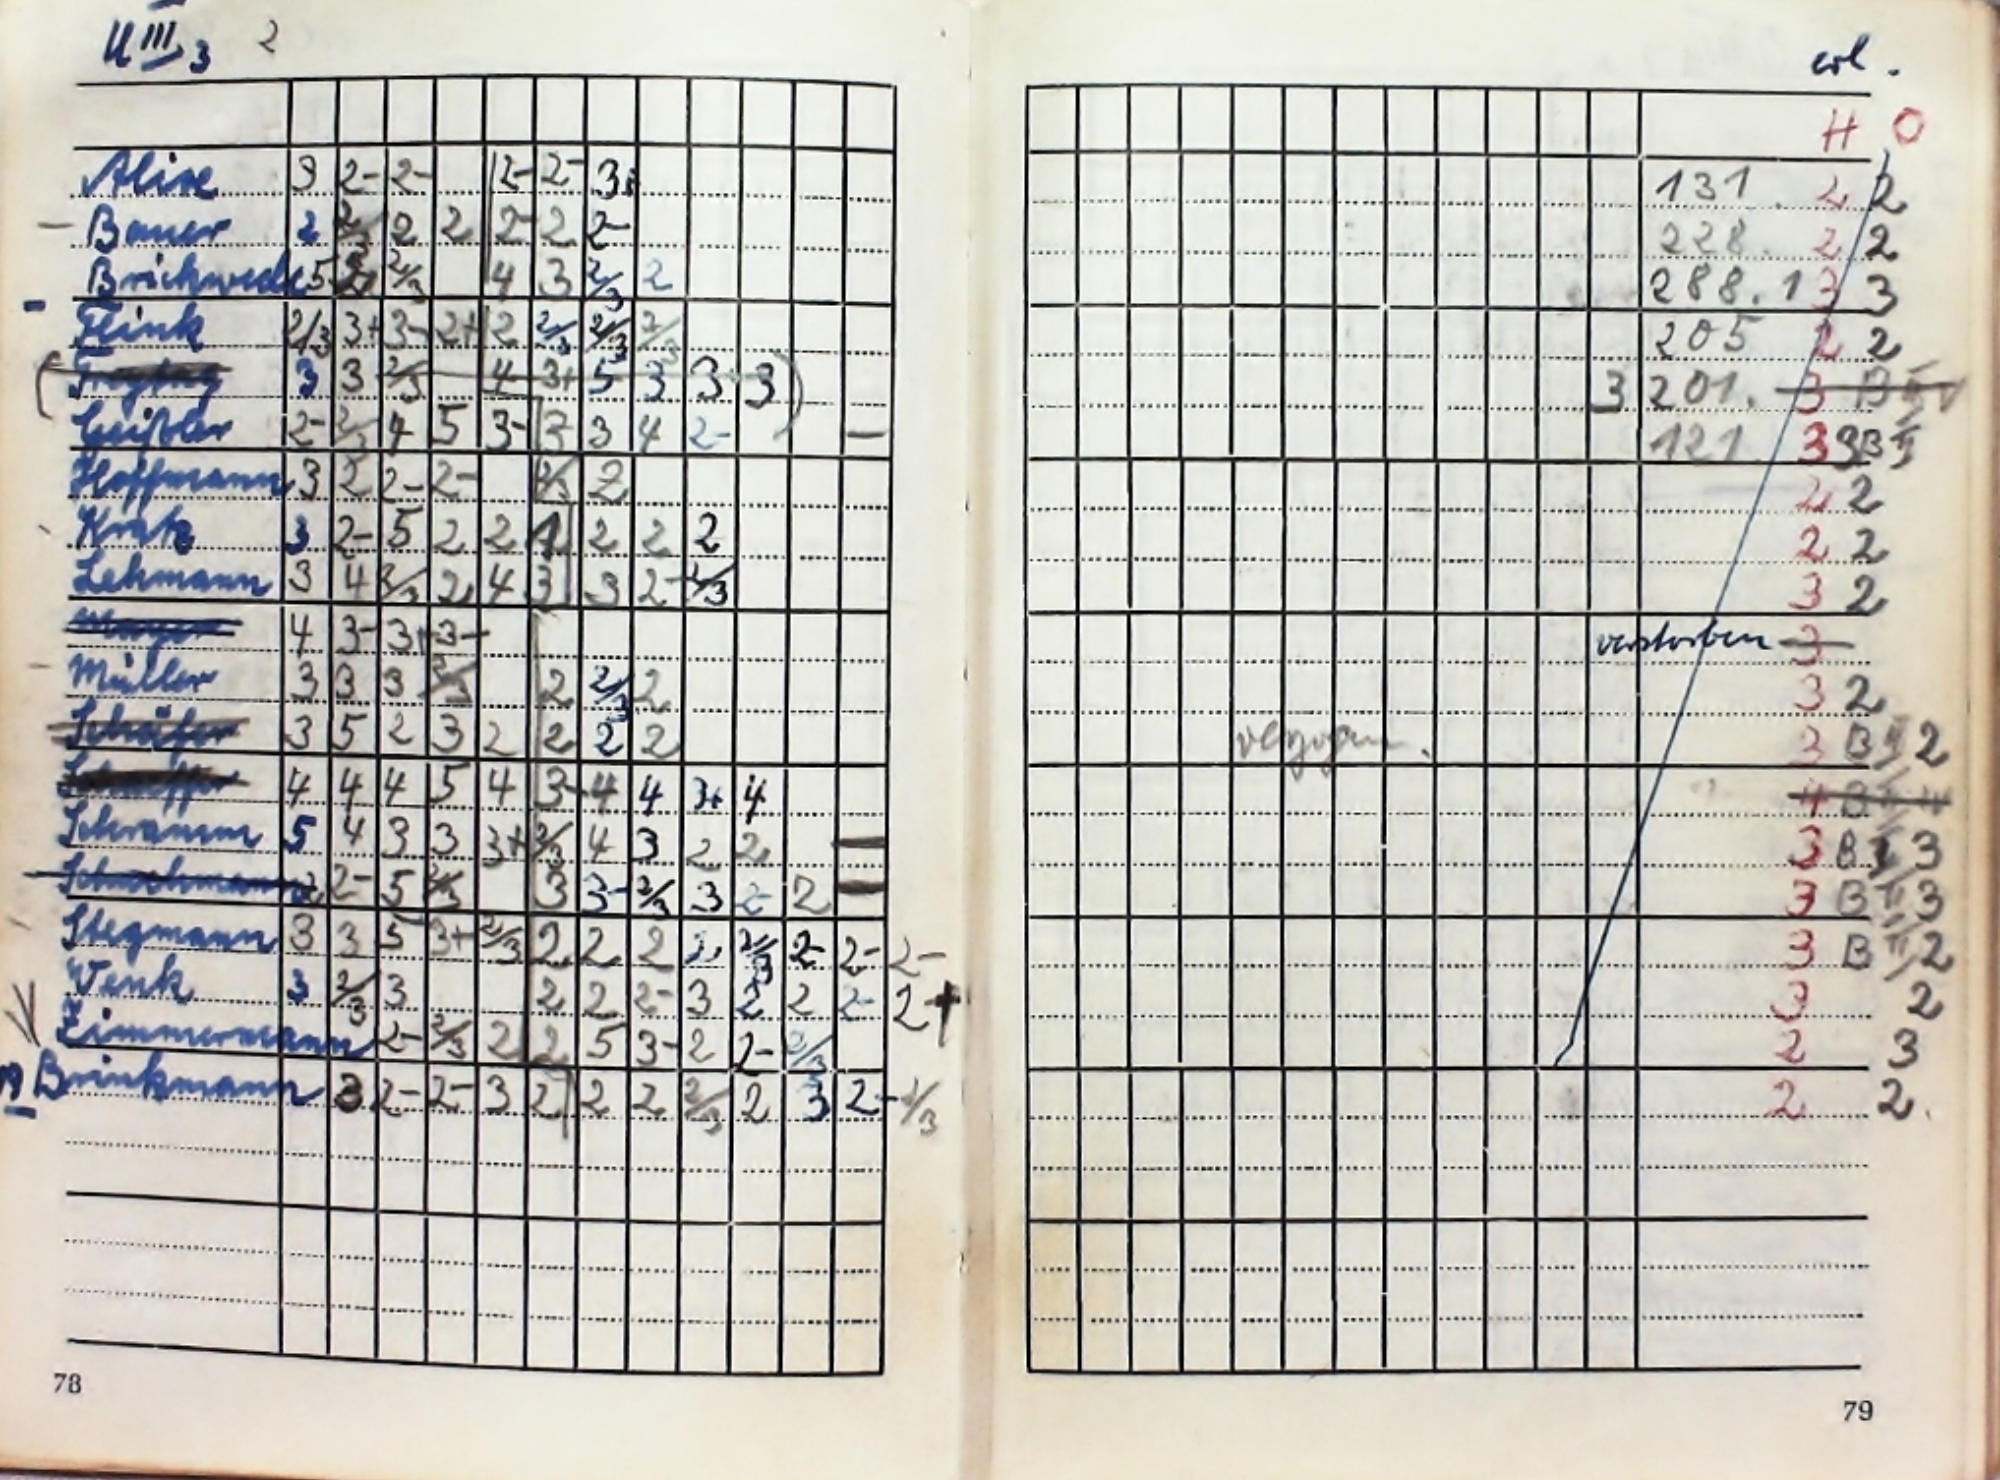 U III 3 2
Alise 3 2- 2- 2- 2- 3+
Bauer 2 2/3 2 2 2- 2 2-
Brückwede 5 2/3 4 3 2/3 2
Flink 2/3 3+ 3- 2+ 2 2/3 2/3 2/3
Freytag 3 3 2/3 4 3+ 5 3 3 3
Geißler 2- 2/3 4 5 3- 3 3 4 2- —
Hoffmann 3 2 2- 2- 2/3 2
Kratz 3 2- 5 2 2 1 2 2 2
Lehmann 3 4 3/3 2 4 3 3 2- 2/3
Mayer 4 3- 3+ 3-
Müller 3 3 3 2/3 2 2/3 2
Schäfer 3 5 2 3 2 2 2 2
4 4 4 5 4 3- 4 4 3+ 4
Schramm 5 4 3 3 3+ 2/3 4 3 2 2 —
Schuchmann 2 2- 5 2/3 3 3- 2/3 3 2- 2 —
Stegmann 3 3 5 3+ 2/3 2 2 2 2 2/3 2- 2- 2-
Wenk 3 2/3 3 2 2 2- 3 2 2 2- 2+
Zimmermann 2- 2/3 2 2 5 3- 2 2- 2/3
19 Brinkmann 3 2- 2- 3 2 2 2 2/3 2 3 2- 2/3
78
erl.
H O
131. 2 2
228. 2 2
288.1 3 3
205 2 2
3 201. 3 B II
121 3 3 B II
2 2
2 2
3 2
verstorben 3
3 2
verzogen. 3 B II 2
4 B II 4
3 B II 3
3 B II 3
3 B II 2
3 2
2 3
2 2.
79